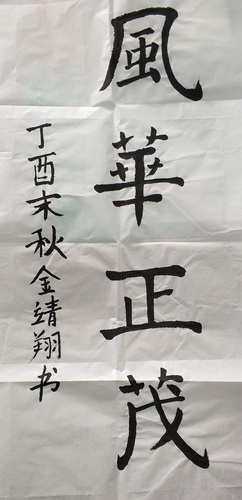 風華正茂
丁酉末秋金靖翔书